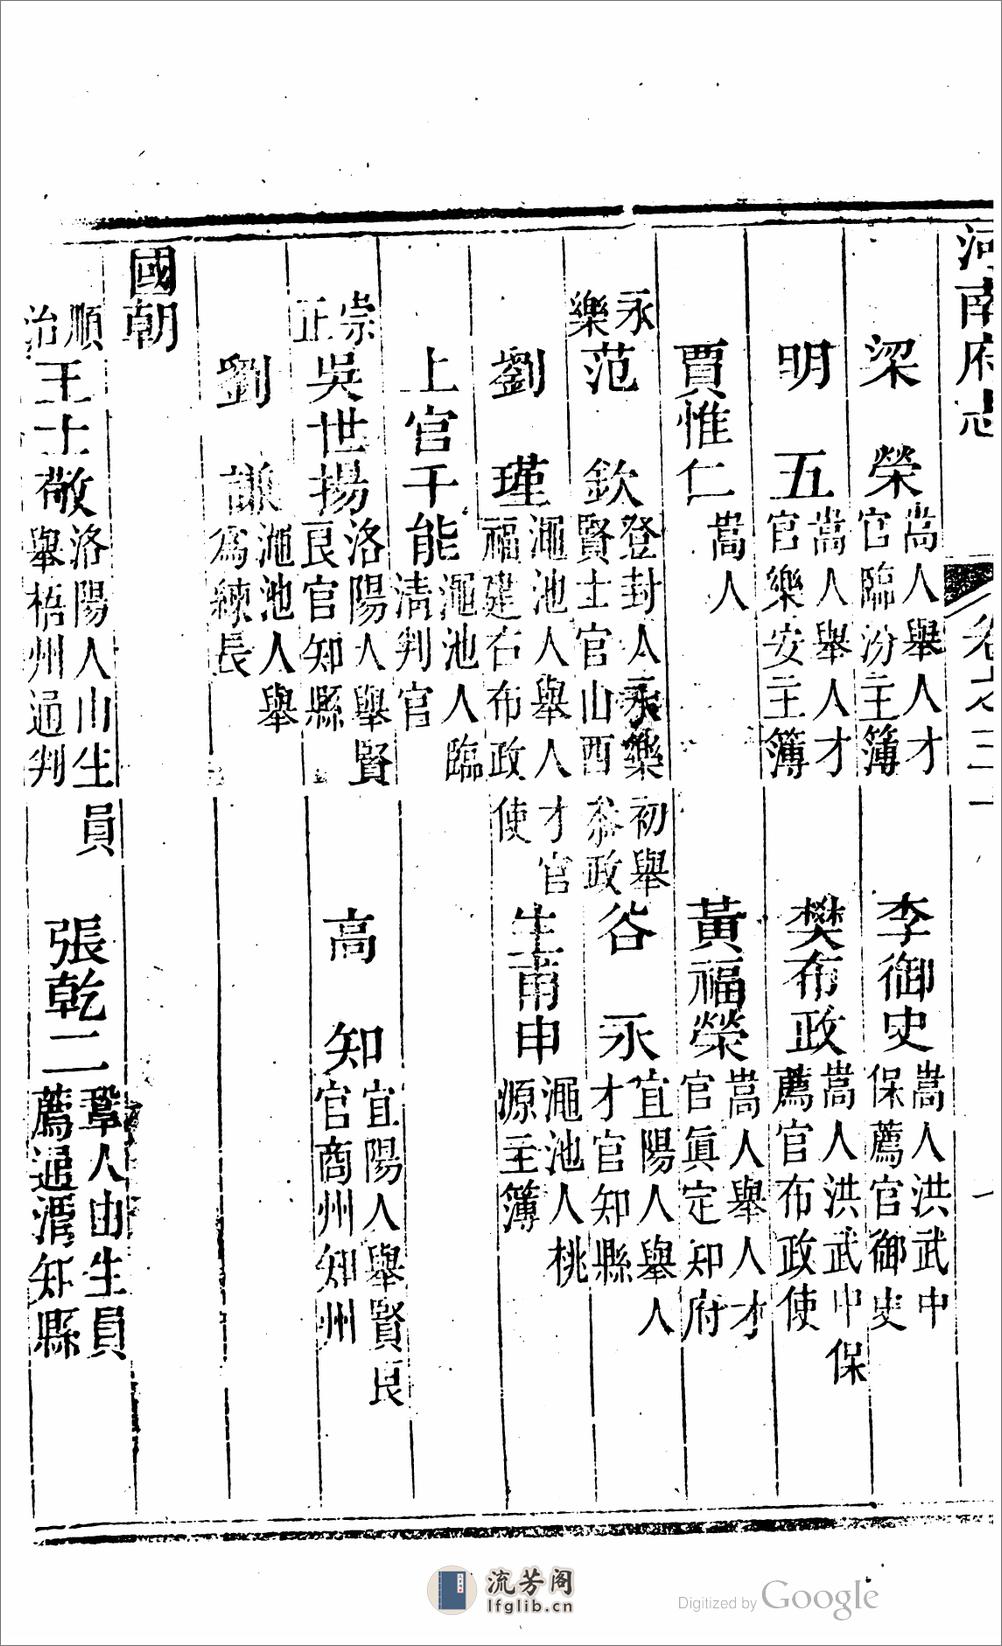 河南府志 卷之三十一
梁榮 嵩人舉人才官臨汾主簿 李御史 嵩人洪武中保薦官御史
明五 嵩人舉人才官樂安主簿 樊布政 嵩人洪武中保薦官布政使
賈惟仁 嵩人 黃福榮 嵩人舉人才官眞定知府
永樂 范欽 登封人永樂初舉賢士官山西叅政 谷永 宜陽人舉人才官知縣
劉瑾 澠池人舉人才官福建右布政使 生甫申 澠池人桃源主簿
上官干能 澠池人臨淸判官
崇正 吳世揚 洛陽人舉賢良官知縣 高知 宜陽人舉賢良官商州知州
劉謙 澠池人舉爲練長
國朝
順治 王士敬 洛陽人由生員舉梧州通判 張乾二 鞏人由生員薦通渭知縣
流芳阁
lfglib.cn
Digitized by Google